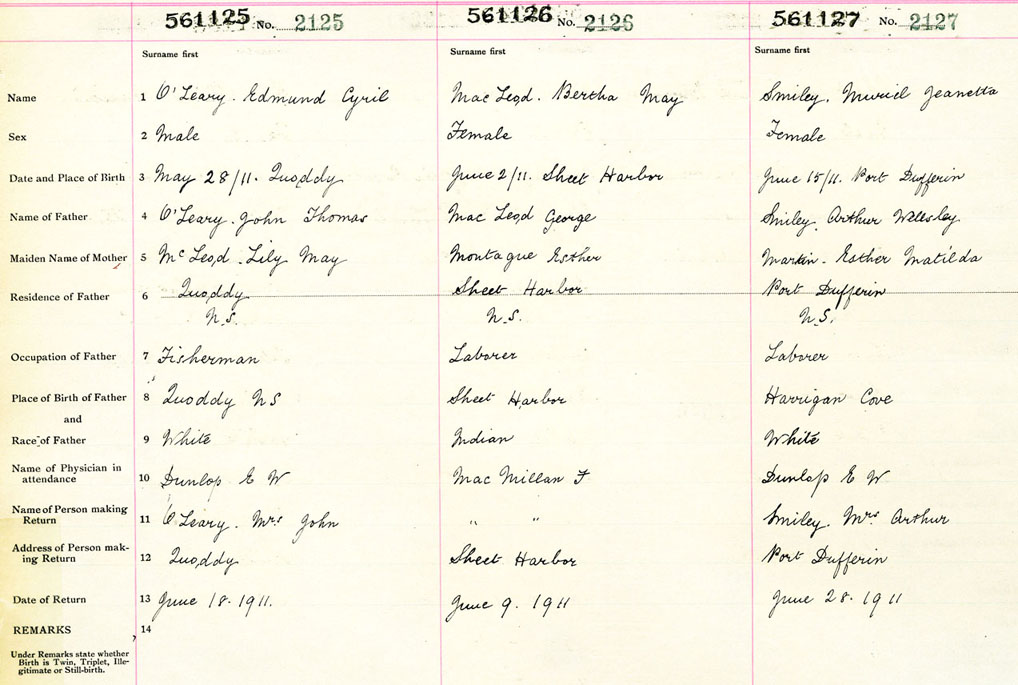 561125 No. 2125 561126 No. 2126 561127 No. 2127
Surname first Surname first Surname first
Name 1 O'Leary. Edmund Cyril Mac Leod. Bertha May Smiley. Muriel Jeanetta
Sex 2 Male Female Female
Date and Place of Birth 3 May 28/11. Quoddy June 2/11. Sheet Harbor June 15/11. Port Dufferin
Name of Father 4 O'Leary. John Thomas Mac Leod George Smiley. Arthur Wellesley
Maiden Name of Mother 5 Mc Leod. Lily May Montague Esther Martin. Esther Matilda
Residence of Father 6 Quoddy Sheet Harbor Port Dufferin
N.S. N.S. N.S.
Occupation of Father 7 Fisherman Laborer Laborer
Place of Birth of Father 8 Quoddy NS Sheet Harbor Harrigan Cove
and
Race of Father 9 White Indian White
Name of Physician in
attendance 10 Dunlop E W Mac Millan F Dunlap E W
Name of Person making
Return 11 O'Leary. Mrs John " " Smiley. Mrs Arthur
Address of Person mak-
ing Return 12 Quoddy Sheet Harbor Port Dufferin
Date of Return 13 June 18. 1911. June 9. 1911 June 28. 1911
REMARKS 14
Under Remarks state whether
Birth is Twin, Triplet, Ille-
gitimate or Still-birth.